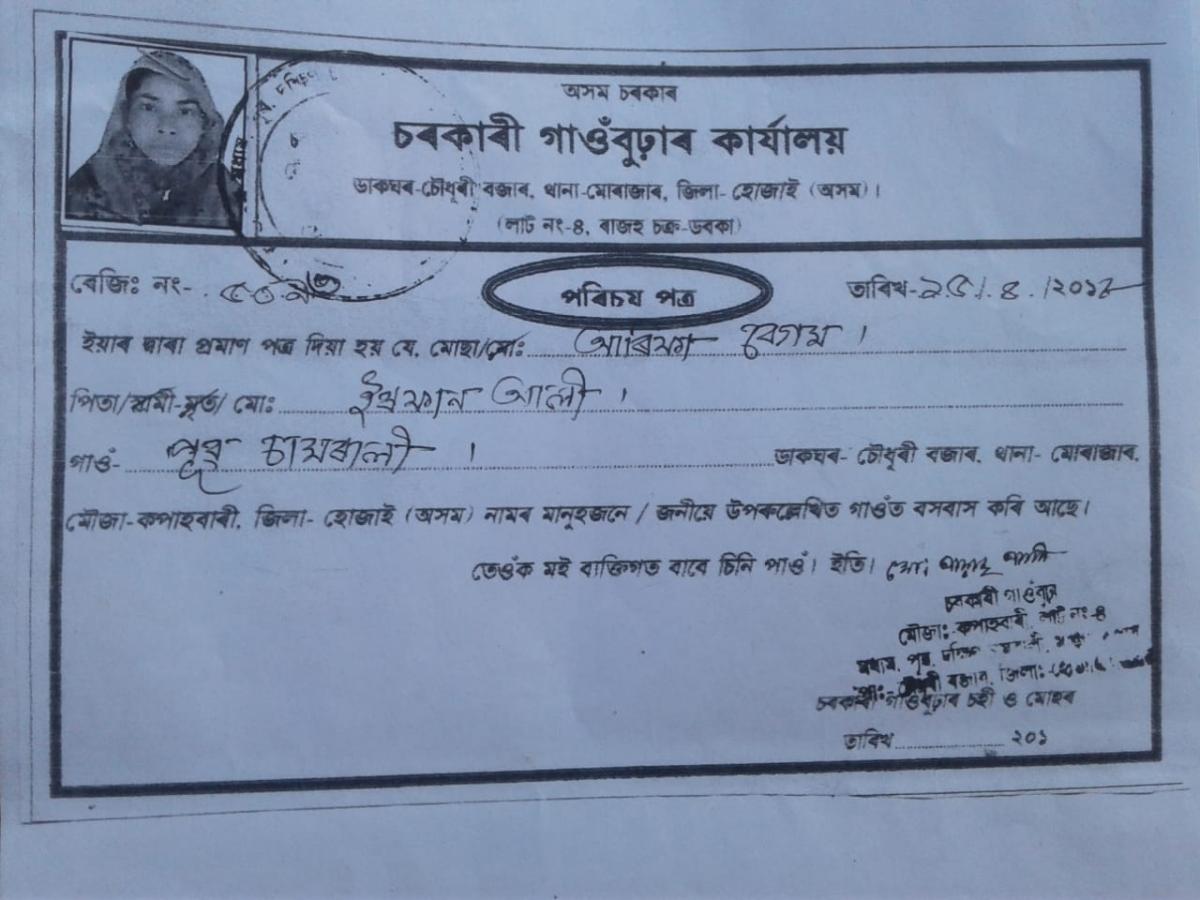 অসম চৰকাৰ
চৰকাৰী গাওঁবুঢ়াৰ কাৰ্যালয়
ডাকঘৰ-চৌধূৰী বজাৰ, থানা-মোৰাজাৰ, জিলা-হোজাই (অসম)।
(লাট নং-৪, ৰাজহ চক্ৰ-ডবকা)
ৰেজিঃ নং-
পৰিচয় পত্ৰ
তাৰিখ-২৫/৪/২০১৮
ইয়াৰ দ্বাৰা প্ৰমাণ পত্ৰ দিয়া হয় যে, মোছা/মোঃ বেগম।
পিতা/স্বামী-মৃত/ মোঃ আলী।
গাওঁ- পূব চামৰালী। ডাকঘৰ- চৌধূৰী বজাৰ, থানা- মোৰাজাৰ,
মৌজা-কপাহবাৰী, জিলা- হোজাই (অসম) নামৰ মানুহজনে / জনীয়ে উপৰুল্লেখিত গাওঁত বসবাস কৰি আছে।
তেওঁক মই ব্যক্তিগত বাবে চিনি পাওঁ। ইতি।
চৰকাৰী গাওঁবুঢ়া
মৌজা:-কপাহবাৰী, লাট নং-৪
বজাৰ, জিলা:-
চৰকাৰী গাওঁবুঢ়াৰ চহী ও মোহৰ
তাৰিখ.................... ২০১